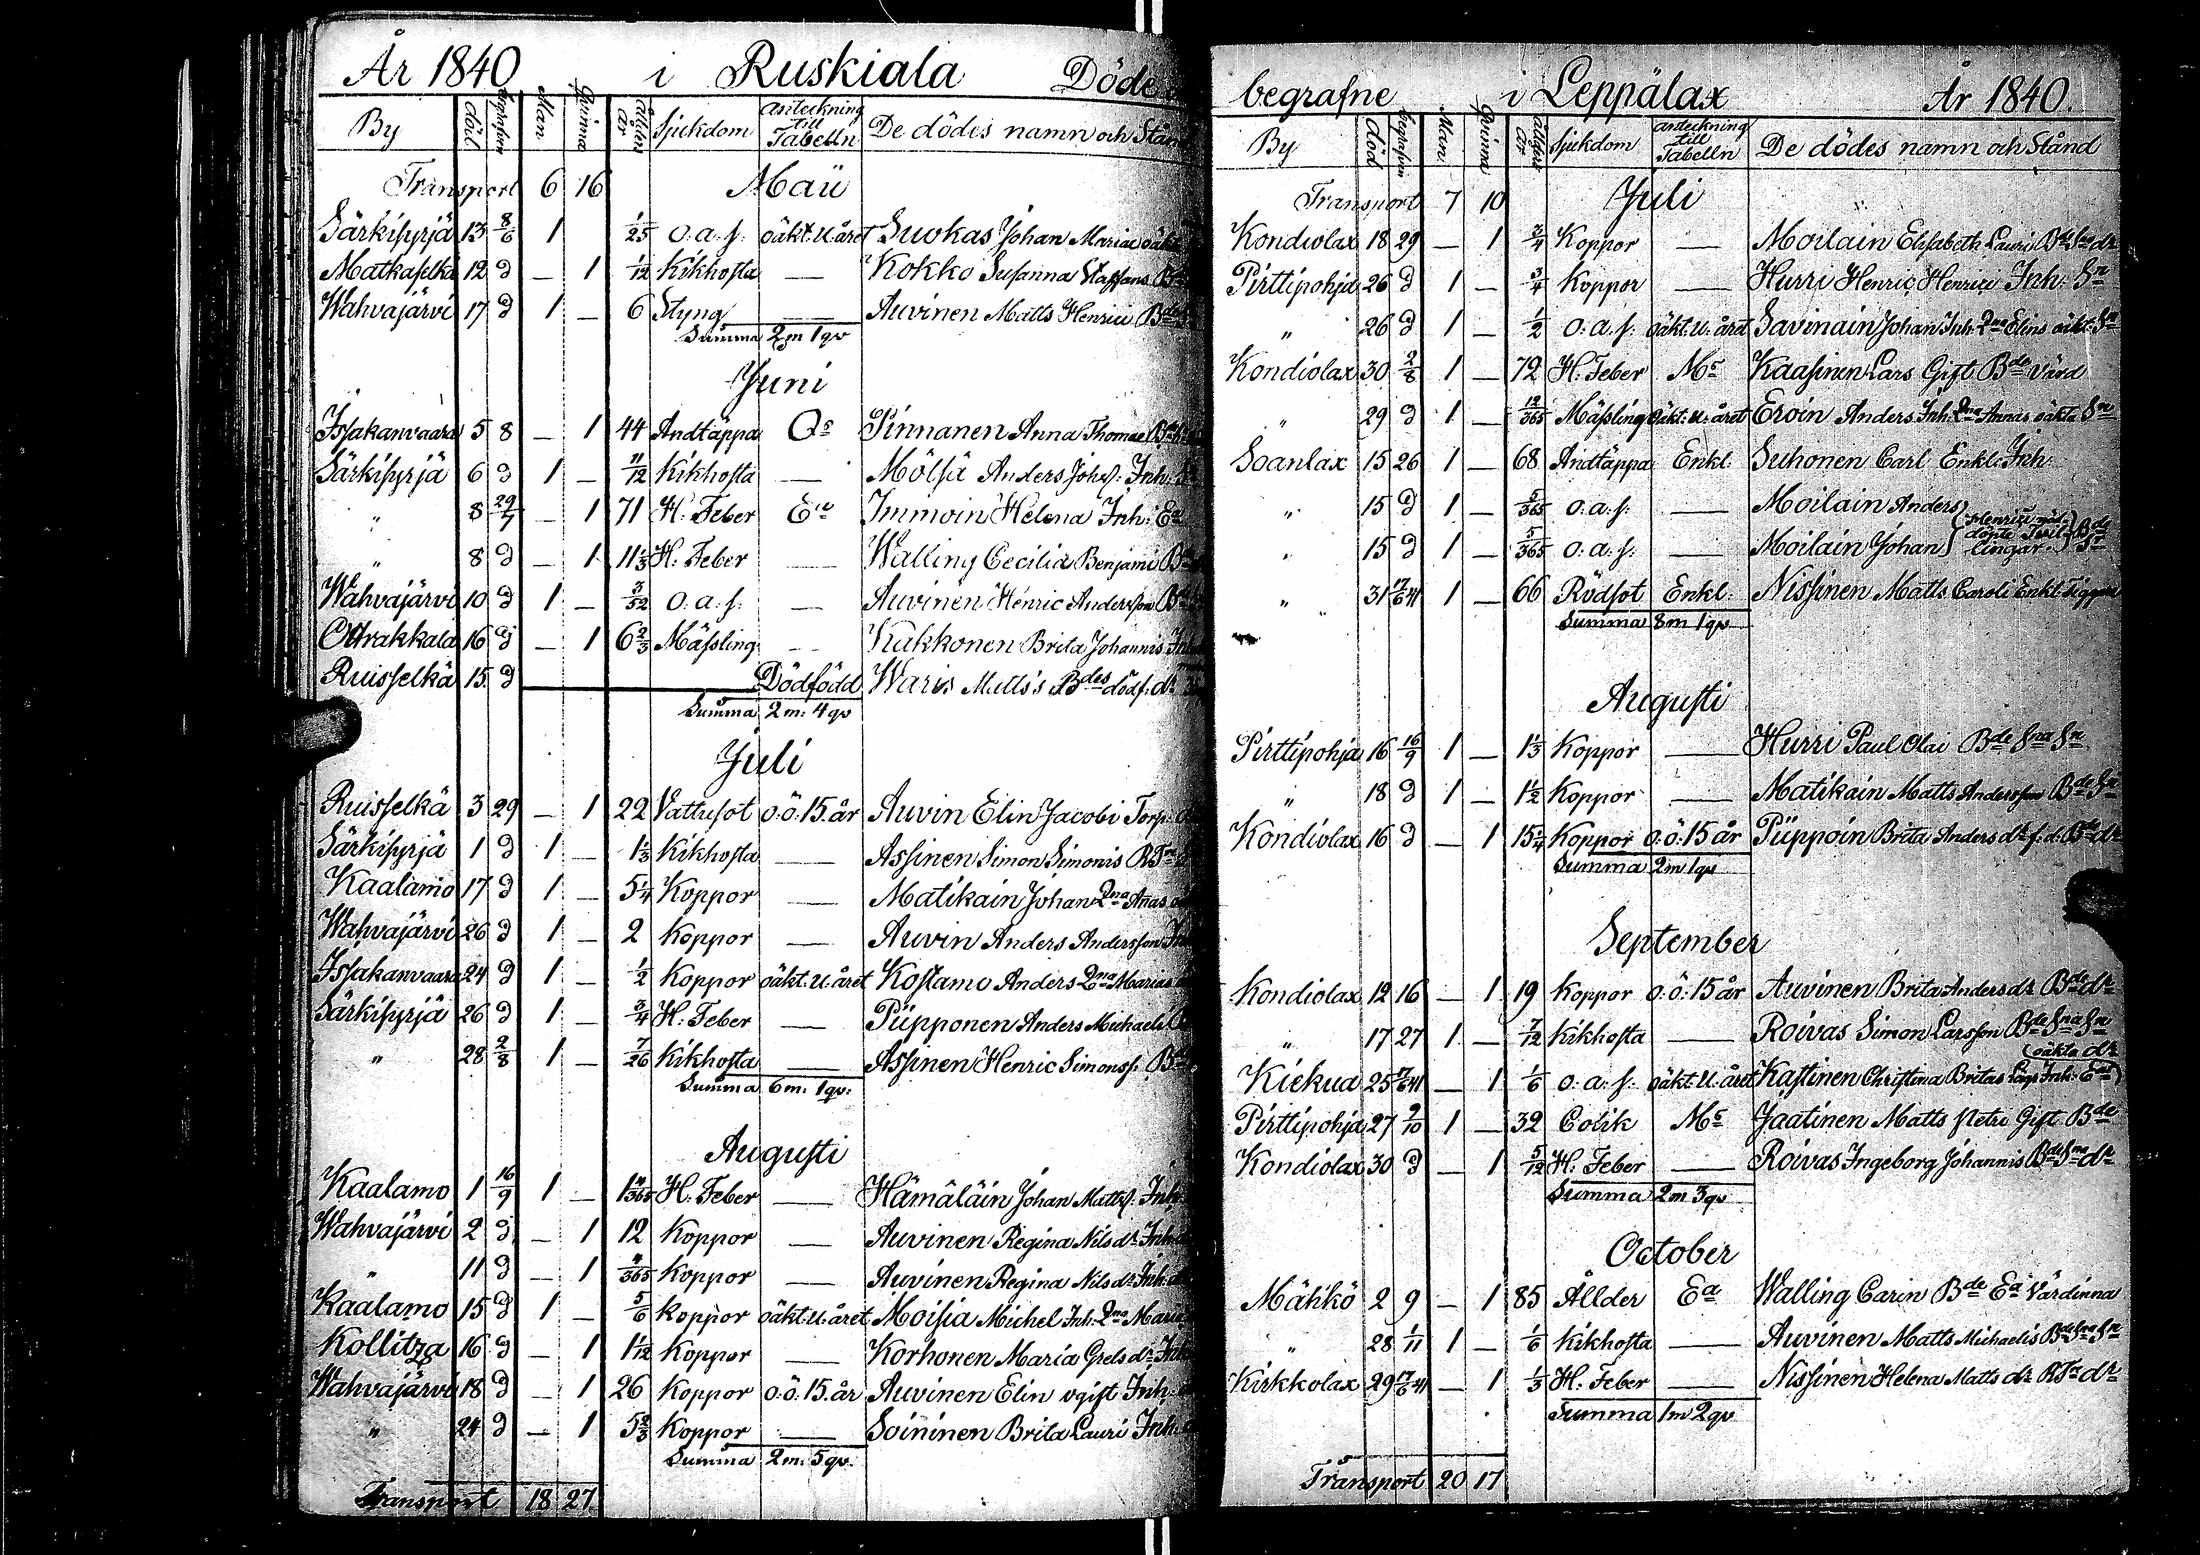 År 1840 i Ruskiala Döde
By död begrafven Man Qvinna Ålder År Sjukdom anteckning till Tabelln De dödes namn och Stånd
Transport 6 16 Maii
Särkisyrjä 13 8/6 1 1/25 o.a.s. oäkt.u.året Suokas Johan Mariae oäkt
Matkaselkä 12 d — 1 1/12 Kikhosta — Kokko Susanna Staffans
Wahvajärvi 17 d 1 — 6 Styng — Auvinen Matts Henrici
Summa 2m 1qv
Juni
Issakanvaara 5 8 — 1 44 Andtäppa Qs Pinnanen Anna Thomae
Särkisyrjä 6 d 1 — 11/12 Kikhosta — Mölsä Anders Johs: Inh:
" 8 29/7 — 1 71 H. Feber Ea Immoin Helena Inh: Ea
" 8 d — 1 11 1/3 H. Feber — Walling Cecilia Benjami
Wahvajärvi 10 d 1 — 3/52 o.a.s. — Auvinen Henric Andersson
Ottrakkala 16 d — 1 6 2/3 Mässling — Kakkonen Brita Johannis
Ruisselkä 15 d Dödfödd Waris Matts's Bdes dödf: dr
Summa 2m: 4qv
Juli
Ruisselkä 3 29 — 1 22 Vattusot o.ö.15.år Auvin Elin Jacobi Torp:
Särkisyrjä 1 d 1 — 1 1/3 Kikhosta — Assinen Simon Simonis
Kaalamo 17 d 1 — 5 1/4 Koppor — Matikain Johan Qna Anas
Wahvajärvi 26 d 1 — 2 Koppor — Auvin Anders Andersson
Issakanvaara 24 d 1 — 1/2 Koppor oäkt.u.året Kostamo Anders Qna Marias
Särkisyrjä 26 d 1 — 3/4 H. Feber — Püpponen Anders Michaeli
" 28 2/8 1 — 7/26 Kikhosta — Assinen Henric Simonss:
Summa 6m: 1qv:
Augusti
Kaalamo 1 16/9 1 — H. Feber — Hämäläin Johan Matts: Inh:
Wahvajärvi 2 d — 1 12 Koppor — Auvinen Regina Nils dr Inh:
11 d — 1 Koppor — Auvinen Regina Nils dr Inh:
Kaalamo 15 d 1 — 5/6 Koppor oäkt.u.året Moisia Michel Inh: Qna Maria
Kollitza 16 d — 1 1 1/12 Koppor — Korhonen Maria Grels dr
Wahvajärvi 18 d — 1 26 Koppor o.ö.15.år Auvinen Elin ogift Inh:
" 24 d — 1 5 2/3 Koppor — Soininen Brita Lauri Inh:
Summa 2m: 5qv.
Transport 18 27
begrafne i Leppälax År 1840.
By död begrafven Man Qvinna Ålder År Sjukdom anteckning till Tabelln De dödes namn och Stånd
Transport 7 10 Juli
Kondiolax 18 29 — 1 3/4 Koppor — Moilain Elisabeth Lauri Bde Sns dr
Pirttipohja 26 d 1 — 3/4 Koppor — Hurri Henric Henrici Inh: Sn
" 26 d 1 — 1/2 o.a.s. oäkt.u.året Savinain Johan Inh: Qna Elins oäkt: Sn
Kondiolax 30 2/8 1 — 72 H. Feber Ms Kaasinen Lars Gift Bde Värd
" 29 d 1 — 12/365 Mässling oäkt.u.året Eroin Anders Inh: Qna Annas oäkta Sn
Soanlax 15 26 1 — 68 Andtäppa Enkl. Suhonen Carl Enkl: Inh:
" 15 d 1 — 5/365 o.a.s. — Moilain Anders
" 15 d 1 — 5/365 o.a.s. — Moilain Johan (Henrici nöddöpte Tvillingar) Bde Sn
" 31 17/6 41 1 — 66 Rödsot Enkl. Nissinen Matts Caroli Enkl Tiggare
Summa 8m 1qv
Augusti
Pirttipohja 16 16/9 1 — 1 1/3 Koppor — Hurri Paul Olai Bde Sns Sn
" 18 d 1 — 1 1/2 Koppor — Matikain Matts Andersson Bde Sn
Kondiolax 16 d — 1 15 1/4 Koppor o.ö.15 år Püppoin Brita Anders dr f.d. Bde dr
Summa 2m 1qv
September
Kondiolax 12 16 — 1 19 Koppor o.ö.15 år Auvinen Brita Anders dr Bde dr
" 17 27 1 — 7/12 Kikhosta — Roivas Simon Larsson Bde Sna Sn
Kiekua 25 17/6 41 — 1 1/6 o.a.s. oäkt.u.året Kastinen Christina Britas Inh: (oäkta dr
Pirttipohja 27 2/10 1 — 32 Colik Ms Jaatinen Matts Petri Gift Bde
Kondiolax 30 d — 1 5/12 H. Feber — Roivas Ingeborg Johannis Bde Sns dr
Summa 2m 3qv
October
Mäkkö 2 9 — 1 85 Ållder Ea Walling Carin Bde Ea Värdinna
" 28 1/11 1 — 1/6 Kikhosta — Auvinen Matts Michaelis Bde Sns Sn
Kirkkolax 29 17/6 41 — 1 1/3 H. Feber — Nissinen Helena Matts dr dr
Summa 1m 2qv
Transport 20 17